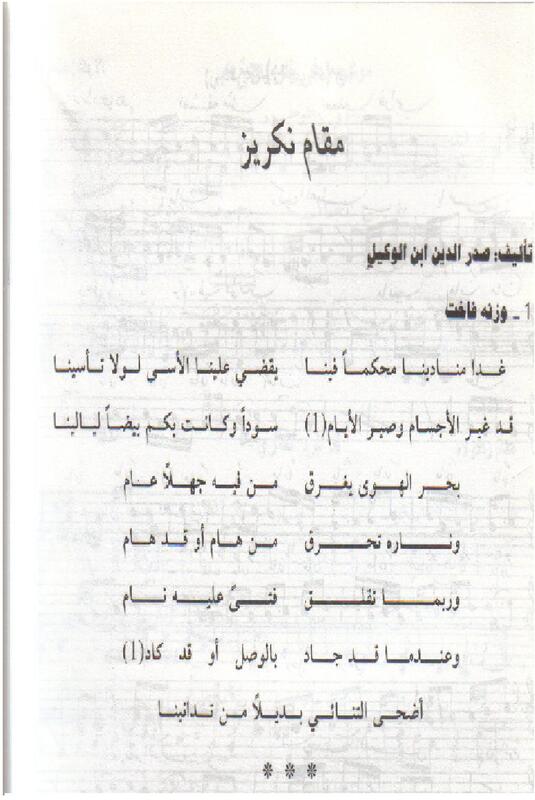 مقام نكريز
تأليف: صدر الدين ابن الوكيل
1 ـ وزنه فاخت
غدا منادينا محكماً فينا يقضي علينا الأسى لولا تأسينا
قد غير الأجسام وصير الأيام(1) سوداً وكانت بكم بيضاً ليالينا
بحر الهوى يغرق من فيه جهلاً عام
وناره تحرق من هام أو قد هام
وربما تقلق فتىً عليه نام
وعندما قد جاد بالوصل أو قد كاد(1)
أضحى التنائي بديلاً من تدانينا
* * *